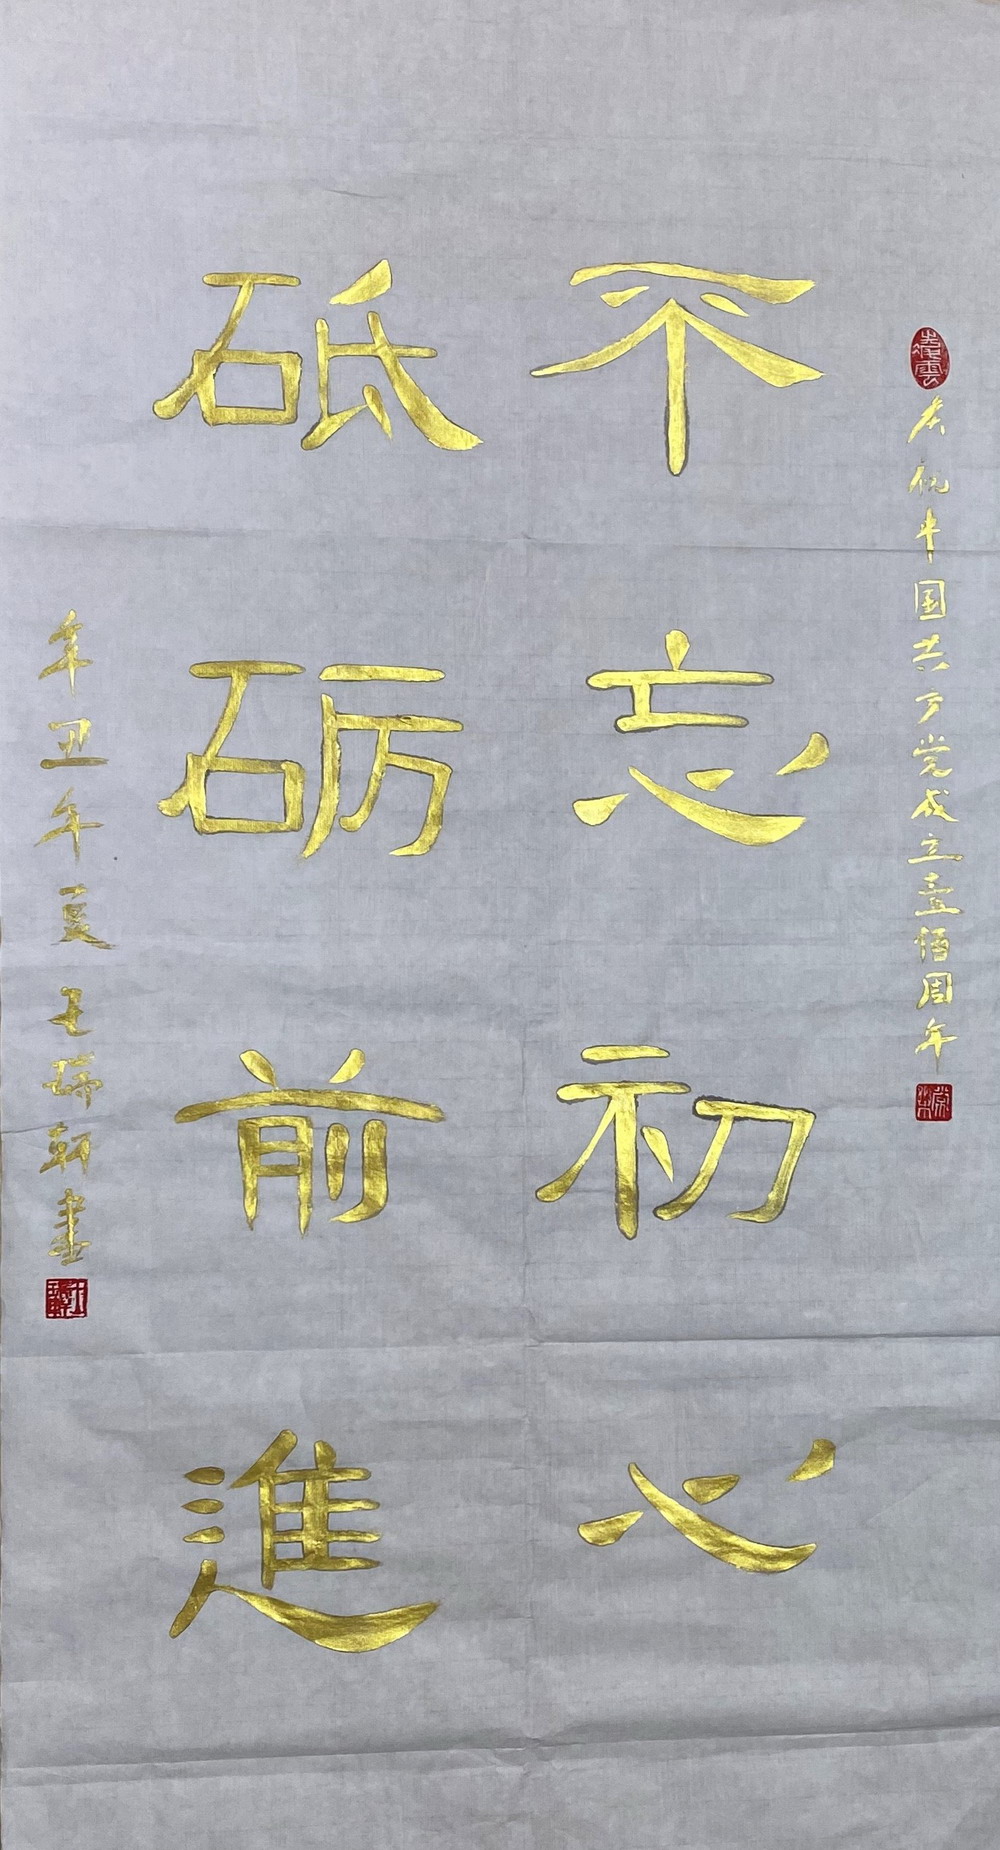 庆祝中国共产党成立壹佰周年
不忘初心
砥砺前進
辛丑年夏王瑞轩書